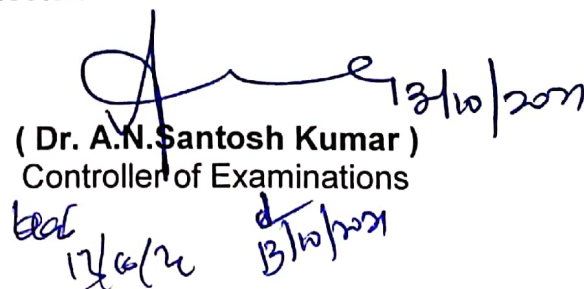 13/10/2021
( Dr. A.N.Santosh Kumar )
Controller of Examinations
13/10/2021